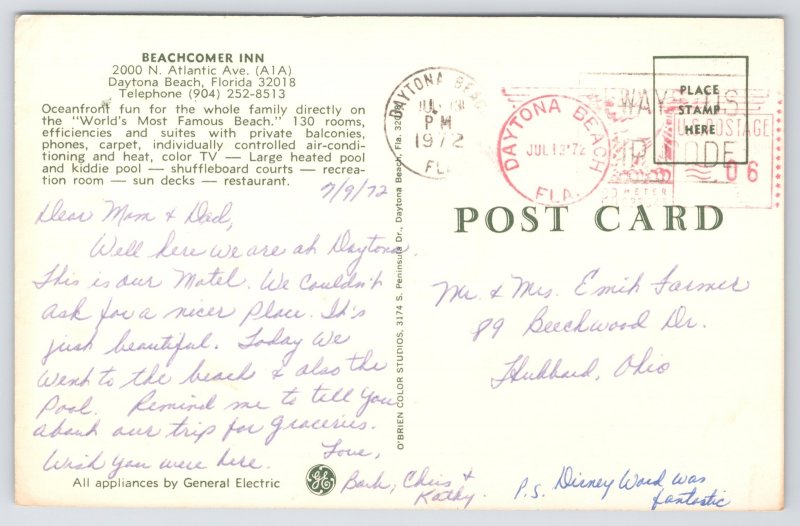 BEACHCOMER INN
2000 N. Atlantic Ave. (A1A)
Daytona Beach, Florida 32018
Telephone (904) 252-8513
Oceanfront fun for the whole family directly on
the "World's Most Famous Beach." 130 rooms,
efficiencies and suites with private balconies,
phones, carpet, individually controlled air-condi-
tioning and heat, color TV — Large heated pool
and kiddie pool — shuffleboard courts — recrea-
tion room — sun decks — restaurant.
7/9/72
Dear Mom & Dad,
Well here we are at Daytona.
This is our Motel. We Couldn't
ask for a nicer Place. It's
just beautiful. Today we
went to the beach & also the
Pool. Remind me to tell you
about our trip for groceries.
Wish you were here.
Love,
Barb, Chris &
Kathy.
All appliances by General Electric
GE
O'BRIEN COLOR STUDIOS, 3174 S. Peninsula Dr., Daytona Beach, Fla.
DAYTONA BEACH
JUL
PM
1972
FLA
DAYTONA BEACH
JUL 13 '72
FLA.
PLACE
STAMP
HERE
U.S. POSTAGE
06
METER
POST CARD
Mr. & Mrs. Emil Farmer
89 Beechwood Dr.
Hubbard, Ohio
P.S. Disney Word was
fantastic